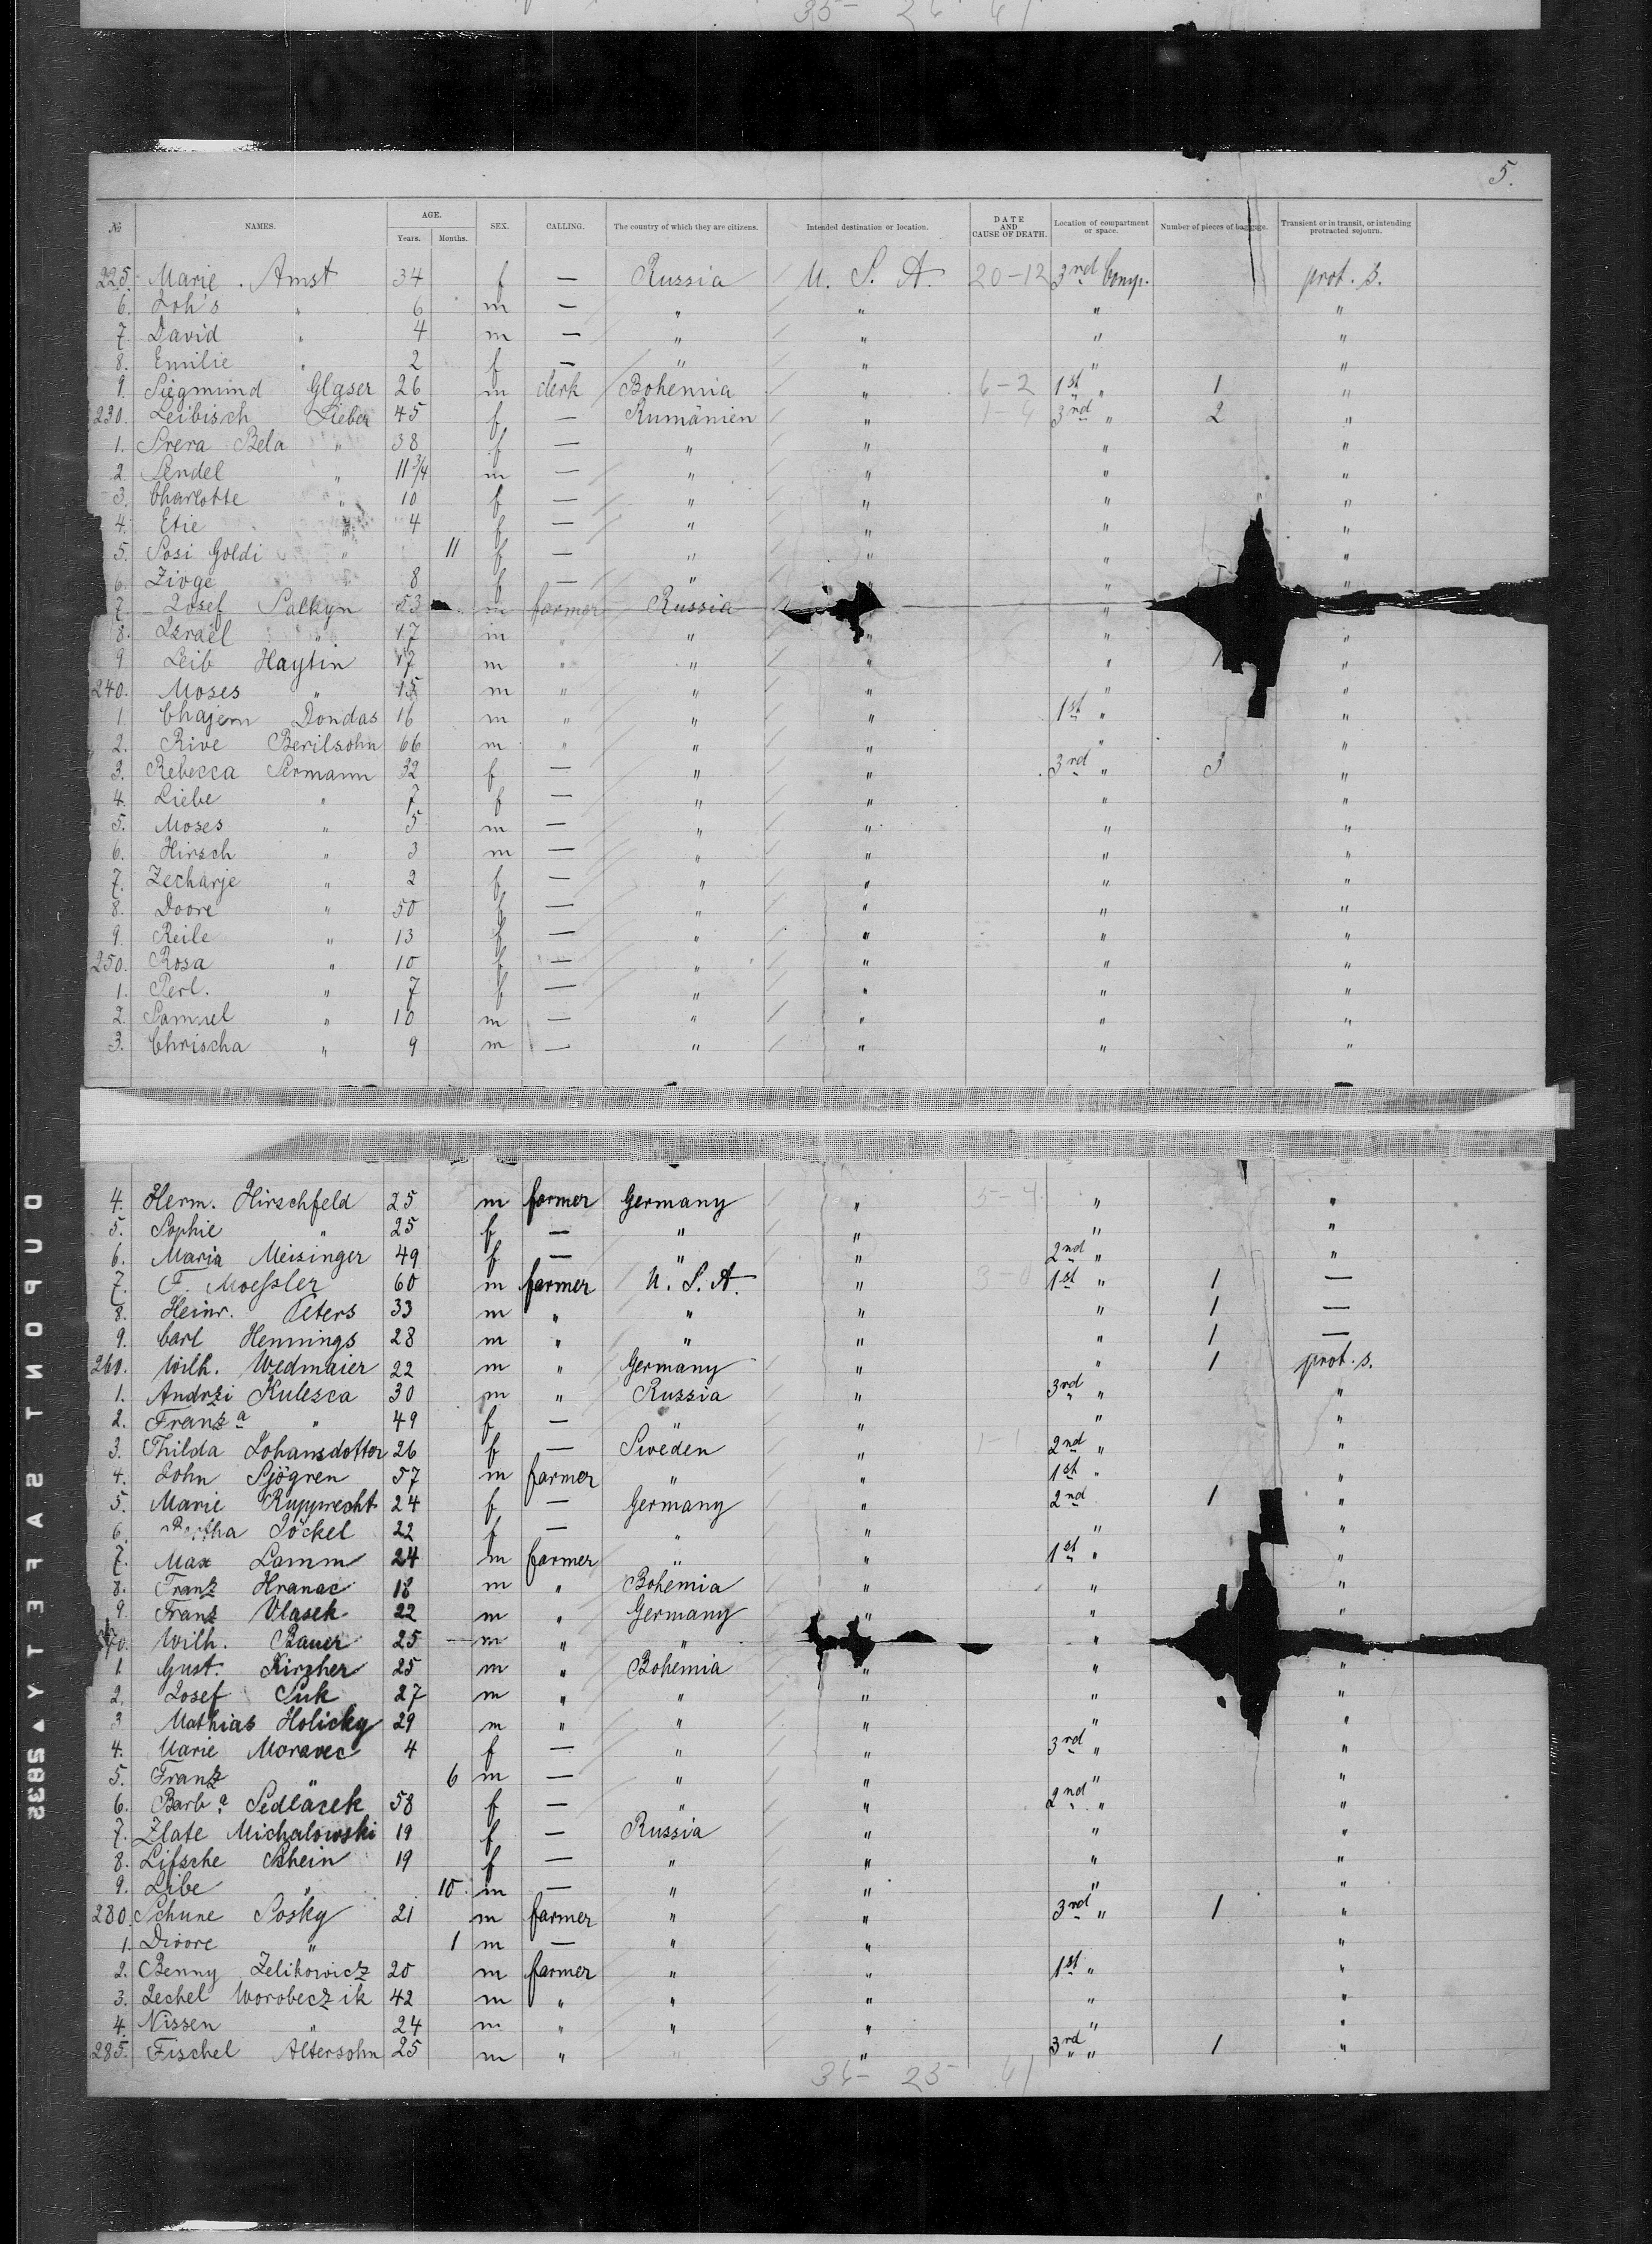 5.
№ NAMES. AGE. Years. Months. SEX. CALLING. The country of which they are citizens. Intended destination or location. DATE AND CAUSE OF DEATH. Location of compartment or space. Number of pieces of baggage. Transient or in transit, or intending protracted sojourn.
225. Marie Amst 34 f — Russia U. S. A. 20-12 3rd Comp. prot. s.
6. Joh's " 6 m — " " " "
7. David " 4 m — " " " "
8. Emilie " 2 f — " " " "
9. Siegmund Glaser 26 m clerk Bohemia " 6-2 1st " 1 "
230. Leibisch Lieber 45 f — Rumänien " 1-4 3rd " 2 "
1. Srera Bela " 38 f — " " " "
2. Sendel " 11 3/4 m — " " " "
3. Charlotte " 10 f — " " " "
4. Etie " 4 f — " " " "
5. Sosi Goldi " 11 f — " " " "
6. Zivge " 8 f — " " " "
7. Josef Salkyn 53 m farmer Russia "
8. Israel " 17 m " " " " "
9 Leib Haytin 17 m " " " " "
240. Moses " 15 m " " " " "
1. Chajem Dondas 16 m " " " 1st " "
2. Rive Berilsohn 66 m " " " " "
3. Rebecca Sermann 32 f — " " 3rd " 3 "
4. Liebe " 7 f — " " " "
5. Moses " 5 m — " " " "
6. Hirsch " 3 m — " " " "
7. Zecharje " 2 f — " " " "
8. Doore " 50 f — " " " "
9. Reile " 13 f — " " " "
250. Rosa " 10 f — " " " "
1. Perl. " 7 f — " " " "
2. Samuel " 10 m — " " " "
3. Chrischa " 9 m — " " " "
4. Herm. Hirschfeld 25 m farmer Germany " 5-4 " "
5. Sophie " 25 f — " " " "
6. Maria Meisinger 49 f — " " 2nd " "
7. F. Moessler 60 m farmer U. S. A. " 3-0 1st " 1 —
8. Heinr. Peters 33 m " " " " 1 —
9. Carl Hennings 28 m " " " " 1 —
260. Wilh. Wedmaier 22 m " Germany " " 1 prot. s.
1. Andrzi Kulesca 30 m " Russia " 3rd " "
2. Franza " 49 f — " " " "
3. Thilda Johansdotter 26 f — Sweden " 1-1 2nd " "
4. John Sjögren 57 m farmer " " 1st " "
5. Marie Rupprecht 24 f — Germany " 2nd 1 "
6. Bertha Jöckel 22 f — " " " "
7. Max Lamm 24 m farmer " " 1st " "
8. Franz Hranac 18 m " Bohemia " " "
9. Franz Vlasek 22 m " Germany " " "
70. Wilh. Bauer 25 m " " "
1. Gust. Kirzher 25 m " Bohemia " " "
2. Josef Suk 27 m " " " " "
3 Mathias Holicky 29 m " " " " "
4. Marie Moravec 4 f — " " 3rd " "
5. Franz " 6 m — " " " "
6. Barba Sedlácek 58 f — " " 2nd " "
7. Zlate Michalowski 19 f — Russia " " "
8. Lifsche Schein 19 f — " " " "
9. Libe " 10 m — " " " "
280. Schune Sosky 21 m farmer " " 3rd " 1 "
1. Divore " 1 m — " " "
2. Benny Zelikowicz 20 m farmer " " 1st " "
3. Jechel Worobeczik 42 m " " " " "
4. Nissen " 24 m " " " " "
285. Fischel Altersohn 25 m " " " 3rd " 1 "
36- 25 41
DUPONT SAFETY